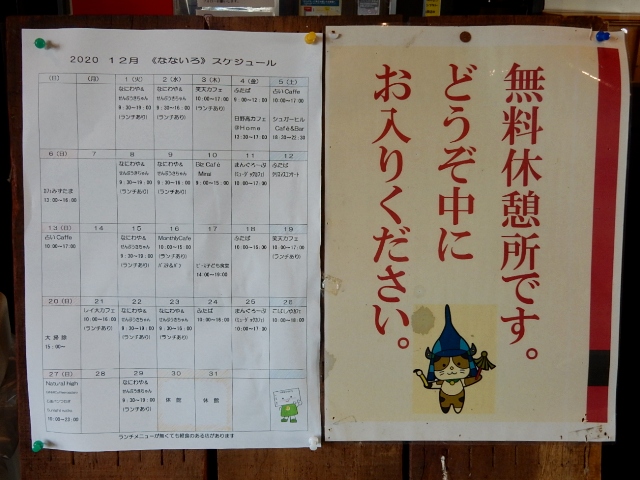 2020 12月 《なないろ》スケジュール
(日) (月) 1 (火) 2 (水) 3 (木) 4 (金) 5 (土)
なにわや&
せんぷうきちゃん
9:30~19:00
(ランチあり)
なにわや&
せんぷうきちゃん
9:30~16:00
(ランチあり)
笑天カフェ
10:00~17:00
(ランチあり)
ふたば
9:00~12:00
日野高カフェ
@Home
13:30~17:00
占いCaffe
10:00~17:00
シュガーヒル
Café&Bar
18:30~22:30
6 (日) 7 8 9 10 11 12
13:30~16:00
なにわや&
せんぷうきちゃん
9:30~19:00
(ランチあり)
なにわや&
せんぷうきちゃん
9:30~16:00
(ランチあり)
Biz Café
Mirai
9:00~15:00
まんぐろーぶ
10:00~16:00
(ランチあり)
ふたば
13 (日) 14 15 16 17 18 19
占いCaffe
10:00~17:00
なにわや&
せんぷうきちゃん
9:30~19:00
(ランチあり)
MonthlyCafe
10:00~15:00
(ランチあり)
14:00~19:00
ふたば
10:00~15:30
笑天カフェ
10:00~17:00
(ランチあり)
20 (日) 21 22 23 24 25 26
15:00~
レイ大カフェ
10:00~16:00
(ランチあり)
なにわや&
せんぷうきちゃん
9:30~19:00
(ランチあり)
なにわや&
せんぷうきちゃん
9:30~16:00
(ランチあり)
ふたば
10:00~16:00
まんぐろーぶ
10:00~16:00
(ランチあり)
10:00~16:00
(ランチあり)
27 (日) 28 29 30 31
Natural High
10:00~23:00
なにわや&
せんぷうきちゃん
9:30~19:00
(ランチあり)
休館
休館
ランチメニューが無くても軽食のある店があります
無料休憩所です。
どうぞ中に
お入りください。